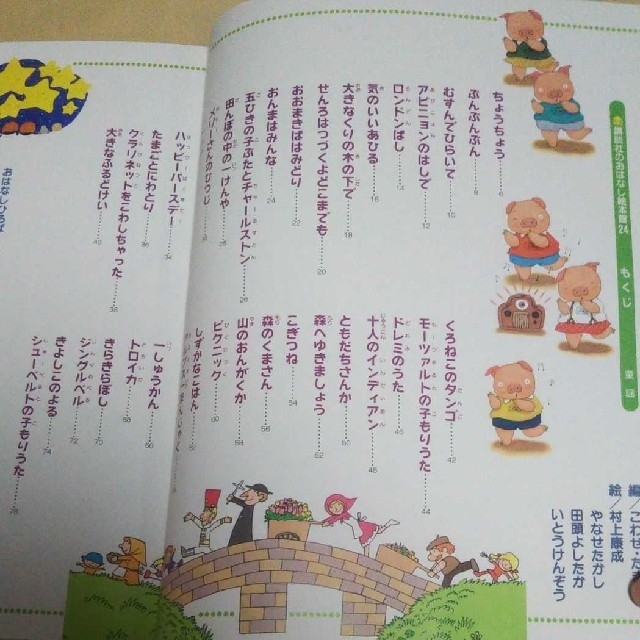 講談社のおはなし絵本館24
もくじ
童謡
編/こわせた
絵/村上康成
やなせたかし
田頭よしたか
いとうけんぞう
ちょうちょう……6
ぶんぶんぶん……8
むすんでひらいて……10
アビニョンのはしで……12
ロンドンばし……14
気のいいあひる……16
大きなくりの木の下で……18
せんろはつづくよどこまでも……20
おおまきばはみどり……22
おんまはみんな……24
五ひきの子ぶたとチャールストン……26
田んぼの中の一けんや
メリーさんのひつじ
ハッピーバースデー……34
たまごとにわとり……36
クラリネットをこわしちゃった……38
大きなふるどけい……40
くろねこのタンゴ……42
モーツァルトの子もりうた……44
ドレミのうた……46
十人のインディアン……48
ともだちさんか……50
森へゆきましょう……52
こぎつね……54
森のくまさん……56
山のおんがくか……58
ピクニック……60
しずかなこはん
一しゅうかん……66
トロイカ……68
きらきらぼし……70
ジングルベル……72
きよしこのよる……74
シューベルトの子もりうた……76
おはなしひろば